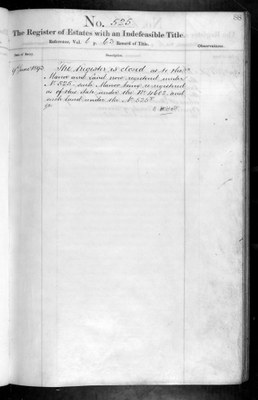 No. 525
The Register of Estates with an Indefeasible Title.
Reference, Vol. 6 p. Record of Title.
Date of Entry. Description. Observations.
The Register is closed as to the
Manor and Land now registered under
No 525, such Manor being re registered
as of this date under the No 4662 and
such Land under the No 525